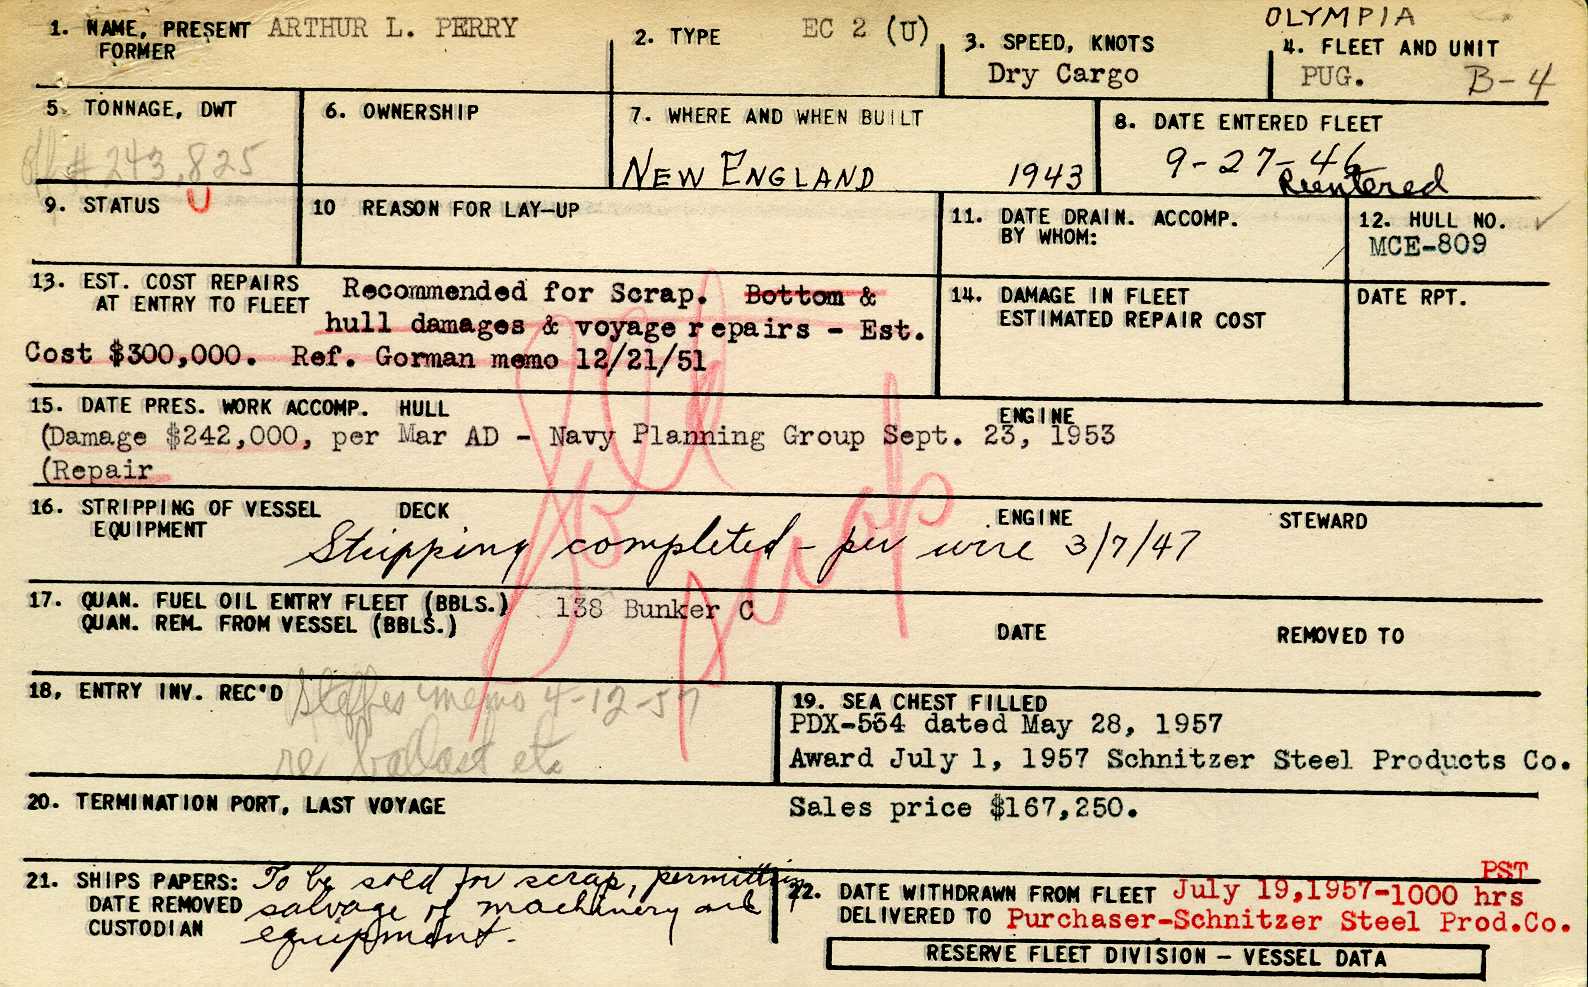 OLYMPIA
1. NAME, PRESENT ARTHUR L. PERRY
FORMER
2. TYPE EC 2 (U)
3. SPEED, KNOTS
Dry Cargo
4. FLEET AND UNIT
PUG. B-4
5. TONNAGE, DWT
# 243,825
6. OWNERSHIP
7. WHERE AND WHEN BUILT
NEW ENGLAND 1943
8. DATE ENTERED FLEET
9-27-46
Reentered
9. STATUS U
10 REASON FOR LAY-UP
11. DATE DRAIN. ACCOMP.
BY WHOM:
12. HULL NO.
MCE-809
13. EST. COST REPAIRS
AT ENTRY TO FLEET
Recommended for Scrap. Bottom &
hull damages & voyage repairs - Est.
Cost $300,000. Ref. Gorman memo 12/21/51
14. DAMAGE IN FLEET
ESTIMATED REPAIR COST
DATE RPT.
15. DATE PRES. WORK ACCOMP. HULL ENGINE
(Damage $242,000, per Mar AD - Navy Planning Group Sept. 23, 1953
(Repair
Sold
scrap
16. STRIPPING OF VESSEL DECK ENGINE STEWARD
EQUIPMENT
Stripping completed - per wire 3/7/47
17. QUAN. FUEL OIL ENTRY FLEET (BBLS.) 138 Bunker C
QUAN. REM. FROM VESSEL (BBLS.) DATE REMOVED TO
18. ENTRY INV. REC'D memo 4-12-57
re ballast etc
19. SEA CHEST FILLED
PDX-554 dated May 28, 1957
Award July 1, 1957 Schnitzer Steel Products Co.
20. TERMINATION PORT, LAST VOYAGE
Sales price $167,250.
21. SHIPS PAPERS:
DATE REMOVED
CUSTODIAN
To be sold for scrap, permitting
salvage of machinery and
equipment.
PST
22. DATE WITHDRAWN FROM FLEET July 19,1957-1000 hrs
DELIVERED TO Purchaser-Schnitzer Steel Prod.Co.
RESERVE FLEET DIVISION - VESSEL DATA